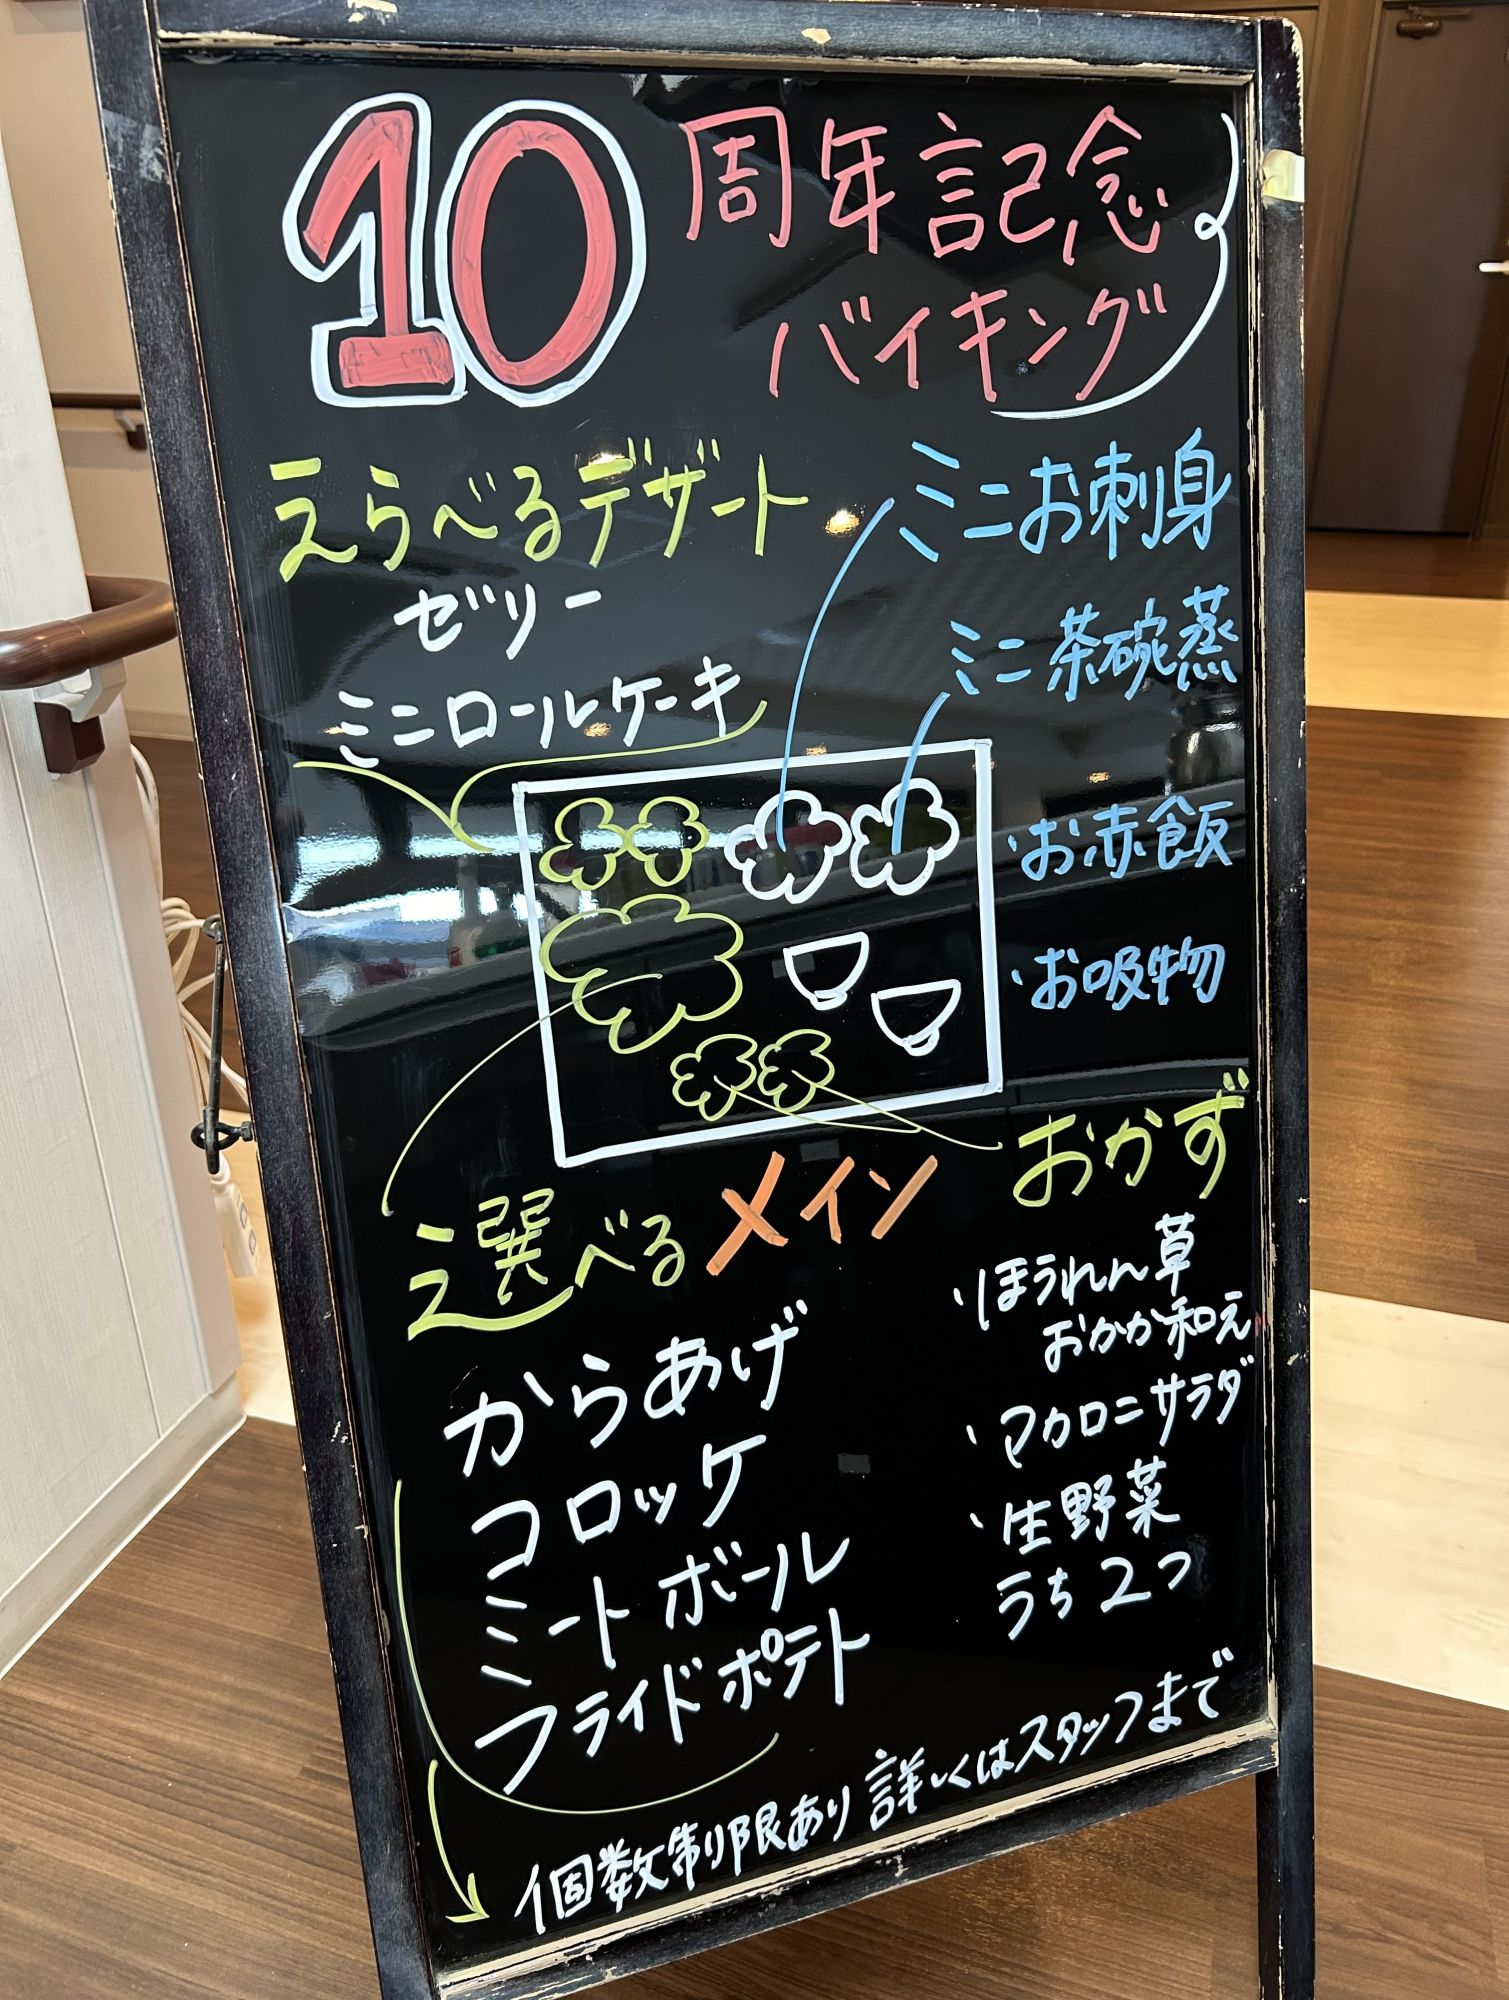 10周年記念
バイキング
えらべるデザート
ゼリー
ミニロールケーキ
ミニお刺身
ミニ茶碗蒸
・お赤飯
・お吸物
選べるメイン
からあげ
コロッケ
ミートボール
フライドポテト
おかず
・ほうれん草
おかか和え
・マカロニサラダ
・生野菜
うち2つ
個数制限あり 詳しくはスタッフまで